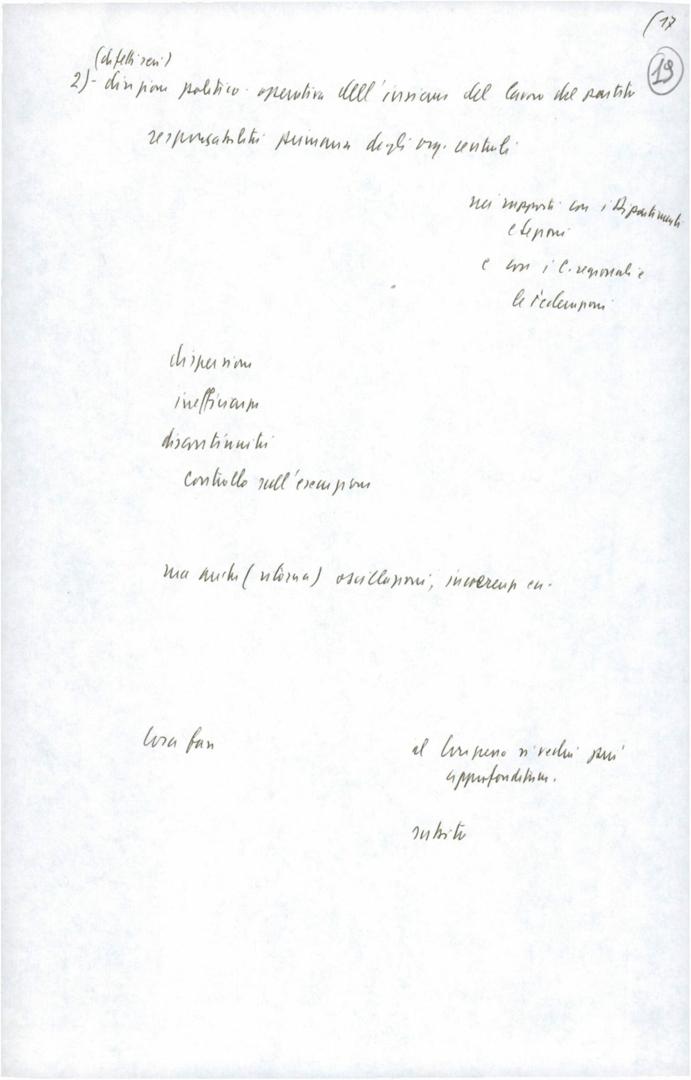 (17
19
(difetti seri)
2)- direzione politico-operativa dell'insieme del lavoro del partito
responsabilità primaria degli org. centrali
nei rapporti con i Dipartimenti
e Sezioni
e con i C. regionali e
le Federazioni
dispersione
inefficienza
discontinuità
controllo sull'esecuzione
ma anche (ritorna) oscillazioni, incertezze
Cosa fare
al Congresso si vedrà più
approfonditam.
subito